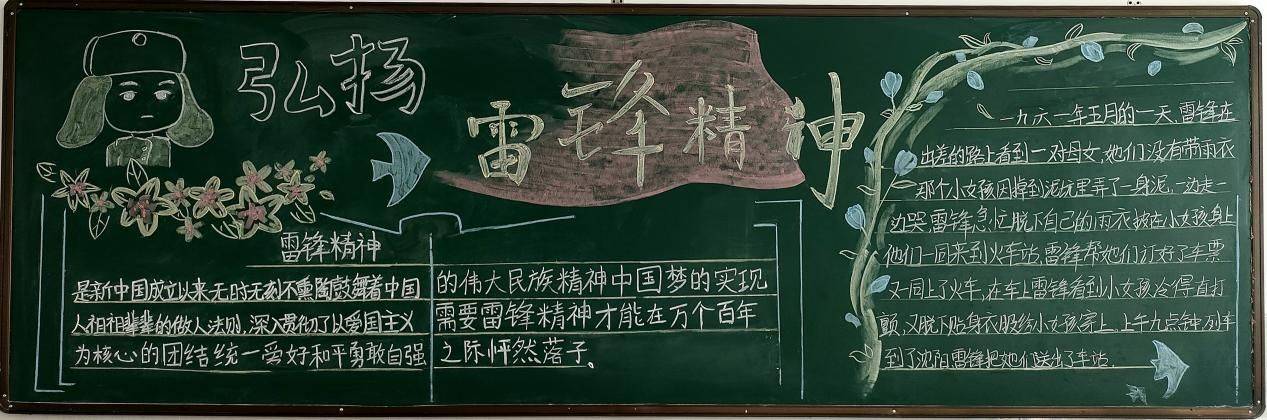 弘扬
雷锋精神
雷锋精神
是新中国成立以来无时无刻不熏陶鼓舞着中国
人祖祖辈辈的做人法则,深入贯彻了以爱国主义
为核心的团结统一爱好和平勇敢自强
的伟大民族精神中国梦的实现
需要雷锋精神才能在万个百年
之际怦然落子。
一九六一年五月的一天,雷锋在
出差的路上看到一对母女,她们没有带雨衣
那个小女孩因掉到泥坑里弄了一身泥,一边走一
边哭雷锋急忙脱下自己的雨衣披在小女孩身上
他们一同来到火车站,雷锋帮她们订好了车票
又一同上了火车,在车上雷锋看到小女孩冷得直打
颤,又脱下贴身衣服给小女孩穿上,上午九点钟,列车
到了沈阳雷锋把她们送出了车站.